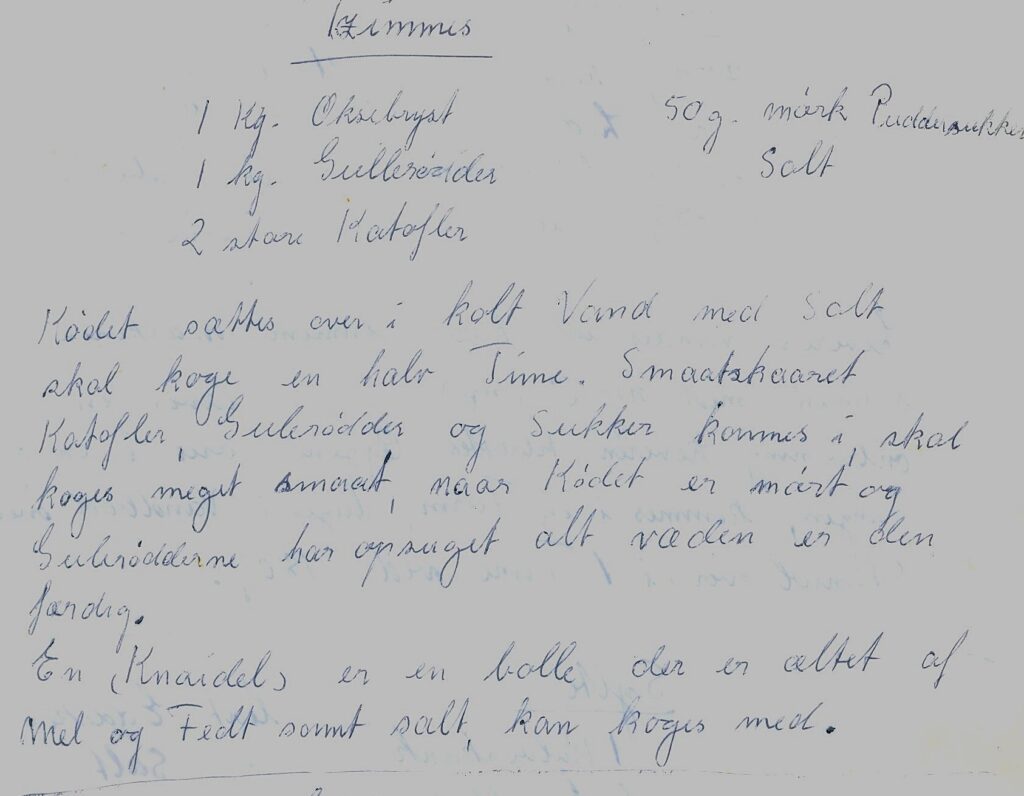 Tzimmes
1 Kg. Oksebryst
50 g. mörk Puddersukker
1 kg. Gulleródder
Salt
2 store Katofler
Ködet sættes over i kolt Vand med Salt
skal koge en halv Time. Smaatskaaret
Katofler, Gulerödder og Sukker kommes i, skal
koges meget smaat, naar Ködet er mört og
Gulerödderne har opsuget alt væden er den
færdig.
En (Knaidel) er en bolle der er æltet af
Mel og Fedt somt salt, kan koges med.